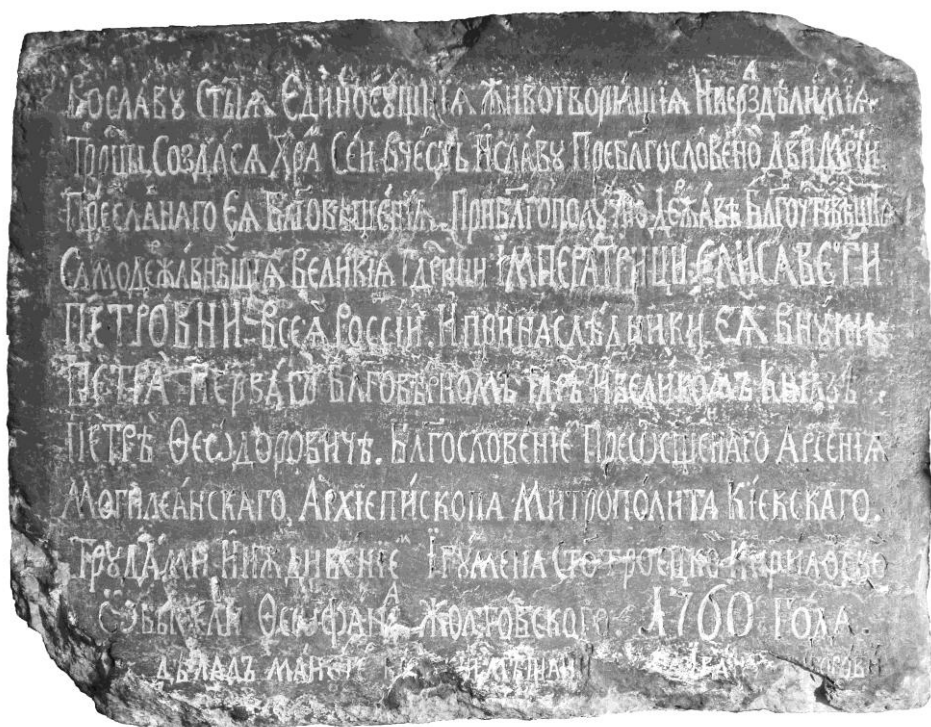 Вославу Стыѧ Єдиносущнїѧ Животворѧщїѧ Инеѳздѣлимїѧ
Троицы Создасѧ Хра Сей Вчесть Иславу Преблгословено Двы Мріи
Преславнаго Єѧ Блговѣщенїѧ При Державѣ
Самодержавнѣшїѧ Великїѧ Гдрини Імператрици Єлисавети
Петровни Всеѧ Россіи И При Наслѣдники Єѧ Внуки
Петра Перваго Благовѣрномъ Гдрѣ Ивеликомъ Кнѧзѣ
Петрѣ Ѳеѡдоровичѣ. Блгословенїе Преѡсщенаго Арсенїѧ
Могилеанскаго, Архїепископа Митрополита Кїевскаго.
Трудами Иниждивенїе Ігумена Сто Троецко Кириловско
Ѳеѡфана Жолтовского: 1760 Года
дѣладъ